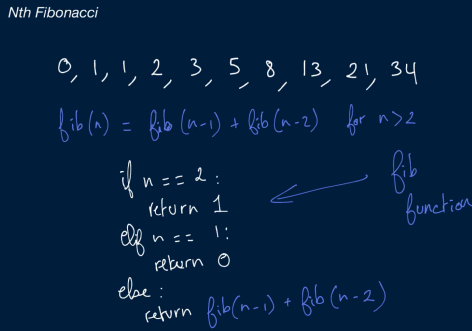 Nth Fibonacci
0, 1, 1, 2, 3, 5, 8, 13, 21, 34
fib(n) = fib(n-1) + fib(n-2) for n>2
if n == 2:
return 1
elif n == 1:
return 0
else:
return fib(n-1) + fib(n-2)
fib
function